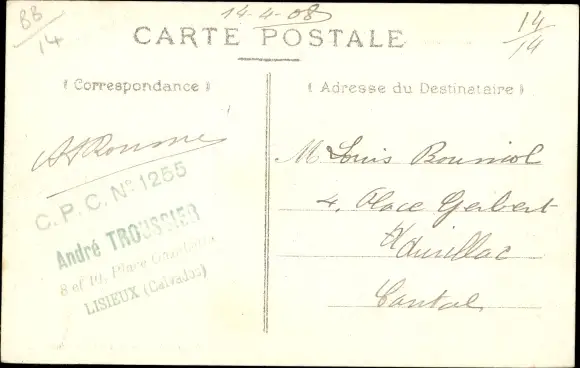 BB
14
14-4-08
14
14
CARTE POSTALE
( Correspondance )
( Adresse du Destinataire )
M Louis Bouniol
4, Place Gerbert
Aurillac
Cantal
C. P. C. Nº 1255
André TROUSSIER
8 et 10, Place
LISIEUX (Calvados)